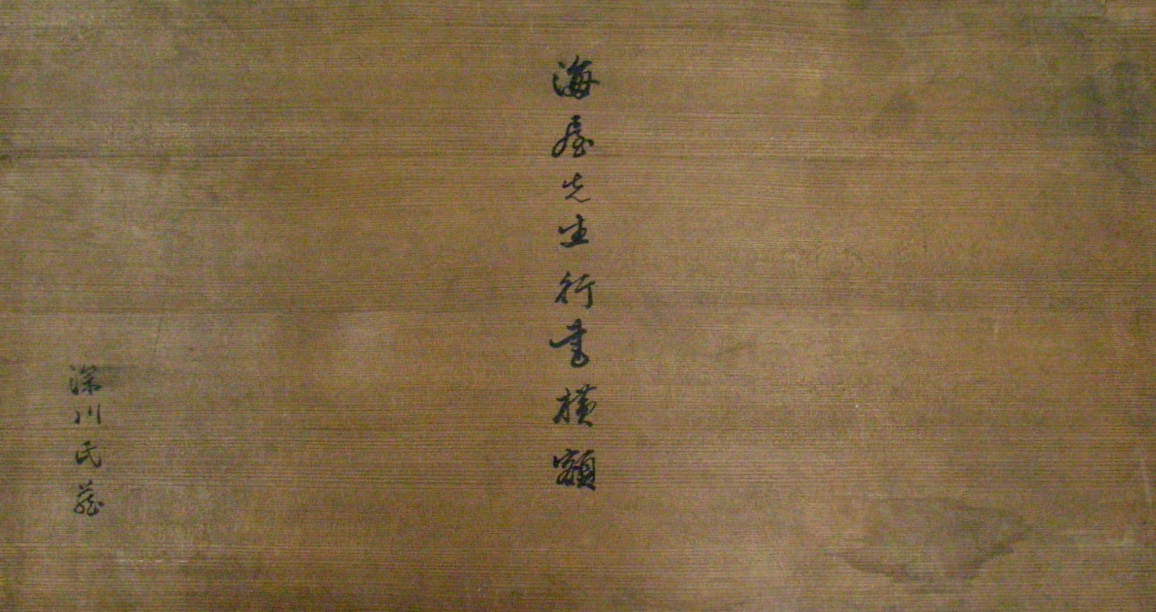 海屋先生行書横額
深川氏蔵